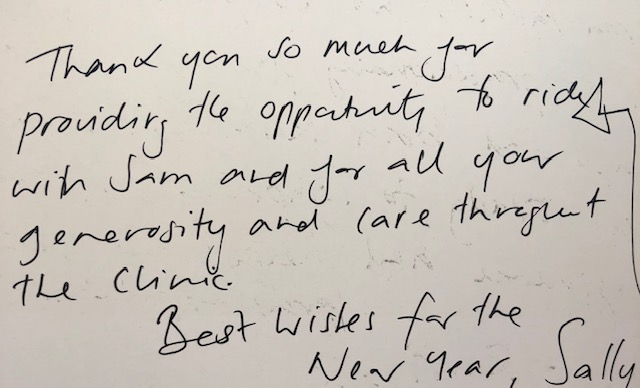 Thank you so much for
providing the opportunity to ride
with Sam and for all your
generosity and care throughout
the Clinic.
Best wishes for the
New Year, Sally